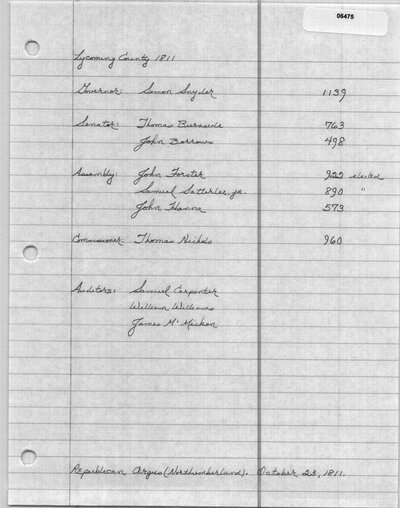 06475
Lycoming County 1811
Governor: Simon Snyder 1139
Senator: Thomas Burnside 763
John Borrows 498
Assembly: John Forster 922 elected
Samuel Satterlee, jr. 890 "
John Hanna 573
Commissioner: Thomas Nichols 960
Auditors: Samuel Carpenter
William Williams
James McMicken
Republican Argus (Northumberland). October 23, 1811.